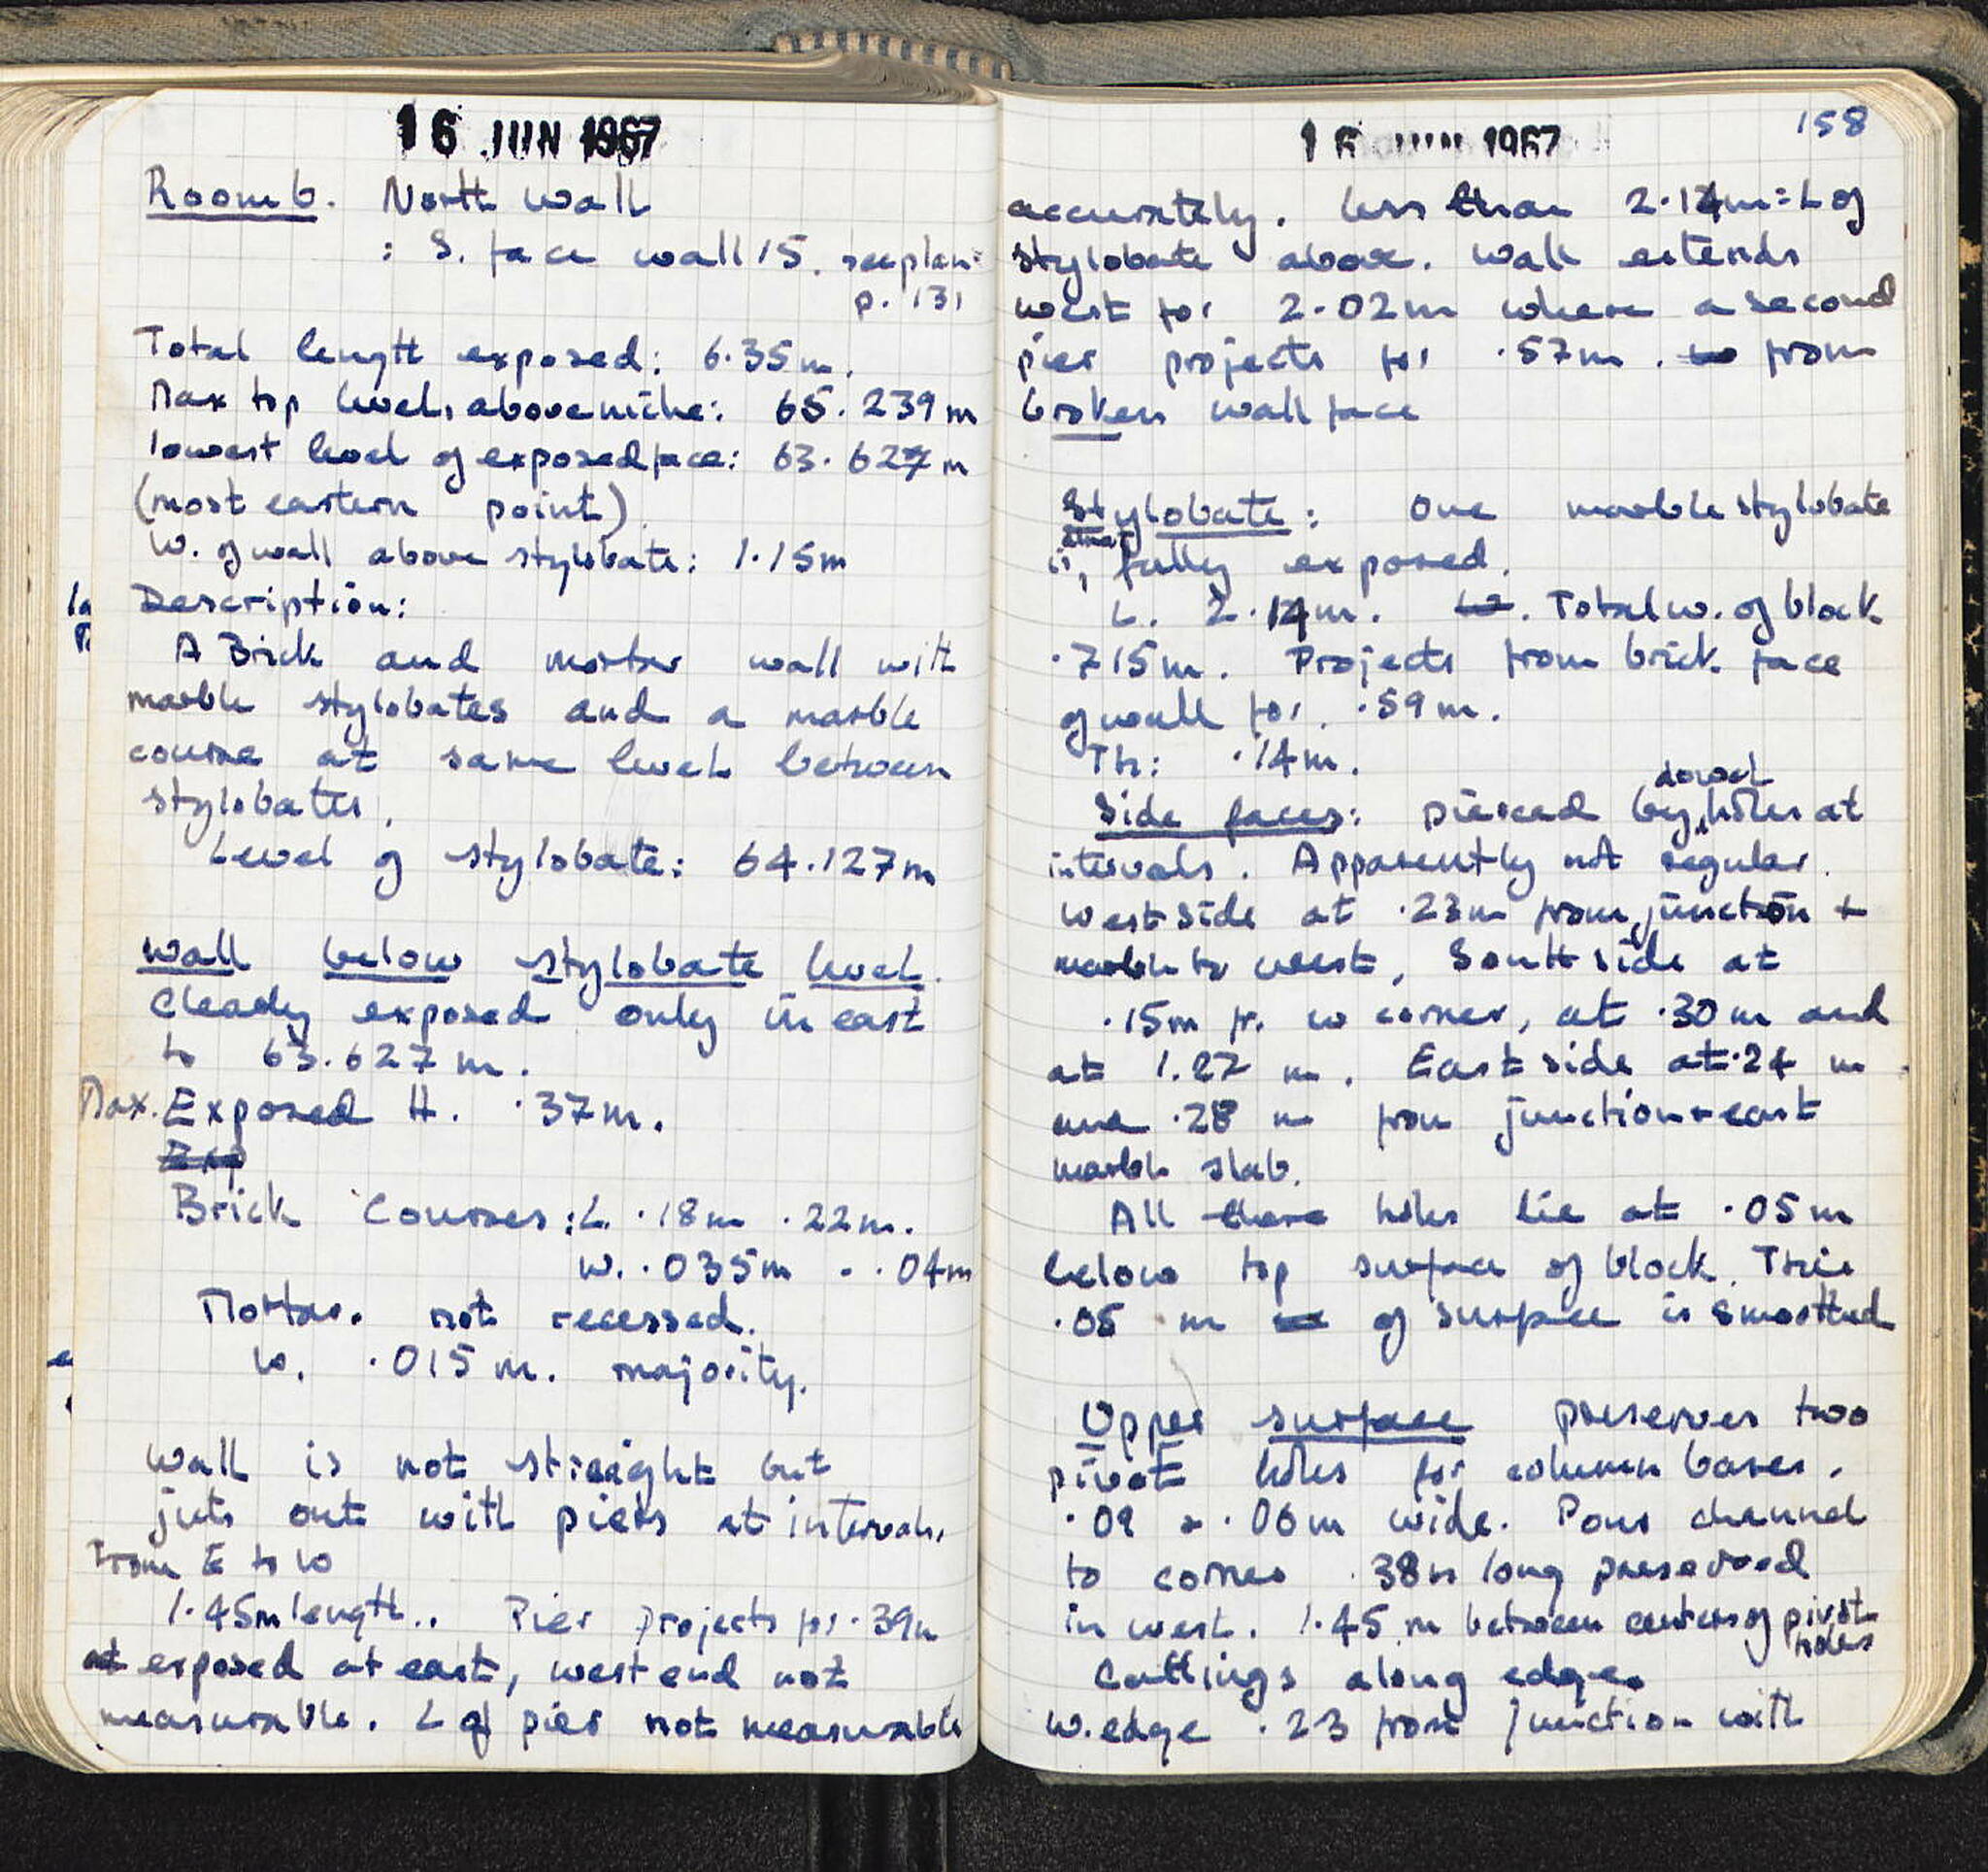 16 JUN 1967
Room 6. North wall
: S. face wall 15. see plan
p. 131
Total length exposed: 6.35m.
Max top level, above niche: 65.239m
lowest level of exposed face: 63.627m
(most eastern point).
W. of wall above stylobate: 1.15m
Description:
A Brick and mortar wall with
marble stylobates and a marble
course at same level between
stylobates.
Level of stylobate: 64.127m
Wall below stylobate level.
Clearly exposed only in east
to 63.627m.
Max. Exposed H. .37m.
Exp
Brick Courses: L. .18m .22m.
w. .035m - .04m
Mortar. not recessed.
w. .015m. majority.
Wall is not straight but
juts out with piers at intervals.
From E to W
1.45m length.. Pier projects for .39m
exposed at east, west end not
measurable. L of pier not measurable
158
16 JUN 1967
accurately. less than 2.14m = L of
stylobate above. Wall extends
west for 2.02m where a second
pier projects for .57m. from
broken wall face
Stylobate: One marble stylobate
is, fully exposed.
L. 2.14m. W. Total w. of block
.715m. Projects from brick face
of wall for .59m.
Th: .14m.
dowel
Side faces: pierced by holes at
intervals. Apparently not regular.
West side at .23m from junction +
marble to west, South side at
.15m fr. w corner, at .30m and
at 1.27 m. East side at .24 m
and .28 m from junction + east
marble slab.
All these holes lie at .05m
below top surface of block. This
.05 m of surface is smoothed
Upper surface preserves two
pivot holes for column bases.
.09 - .06m wide. Pour channel
to corner .38m long preserved
in west. 1.45 m between centers of pivot
holes
Cuttings along edge.
W. edge .23 from junction with